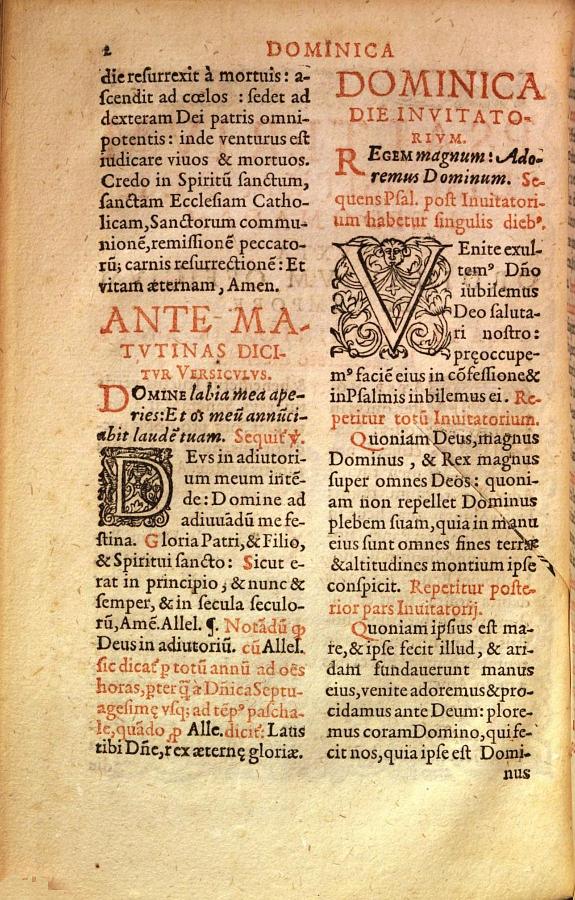 2
DOMINICA
die resurrexit à mortuis: a-
scendit ad cœlos : sedet ad
dexteram Dei patris omni-
potentis: inde venturus est
iudicare viuos & mortuos.
Credo in Spiritū sanctum,
sanctam Ecclesiam Catho-
licam, Sanctorum commu-
nionē, remissionē peccato-
rū; carnis resurrectionē: Et
vitam æternam, Amen.
ANTE MA-
TVTINAS DICI-
TVR VERSICVLVS.
DOMINE labia mea ape-
ries: Et os meū annūci-
abit laudē tuam. Sequiť ℣.
DEvs in adiutori-
um meum intē-
de: Domine ad
adiuuādū me fe-
stina. Gloria Patri, & Filio,
& Spiritui sancto: Sicut e-
rat in principio, & nunc &
semper, & in secula seculo-
rū, Amē. Allel. ¶. Notādū ꝙ
Deus in adiutoriū. cū Allel.
sic dicať p totū annū ad oēs
horas, pterꝗ̃ à Dñica Septu-
agesimę vsq; ad tēpꝰ pascha-
le, quādo ꝓ Alle. diciť: Laus
tibi Dñe, rex æternę gloriæ.
DOMINICA
DIE INVITATO-
RIVM.
REGEM magnum: Ado-
remus Dominum. Se-
quens Psal. post Inuitatori-
um habetur singulis diebꝰ.
VEnite exul-
temꝰ Dño
iubilemus
Deo saluta-
ri nostro:
pręoccupe-
mꝰ faciē eius in cōfessione &
in Psalmis iubilemus ei. Re-
petitur totū Inuitatorium.
Quoniam Deus, magnus
Dominus, & Rex magnus
super omnes Deos: quoni-
am non repellet Dominus
plebem suam, quia in manu
eius sunt omnes fines terræ
& altitudines montium ipse
conspicit. Repetitur poste-
rior pars Inuitatorij.
Quoniam ipsius est ma-
re, & ipse fecit illud, & ari-
dam fundauerunt manus
eius, venite adoremus & pro-
cidamus ante Deum: plore-
mus coram Domino, qui fe-
cit nos, quia ipse est Domi-
nus